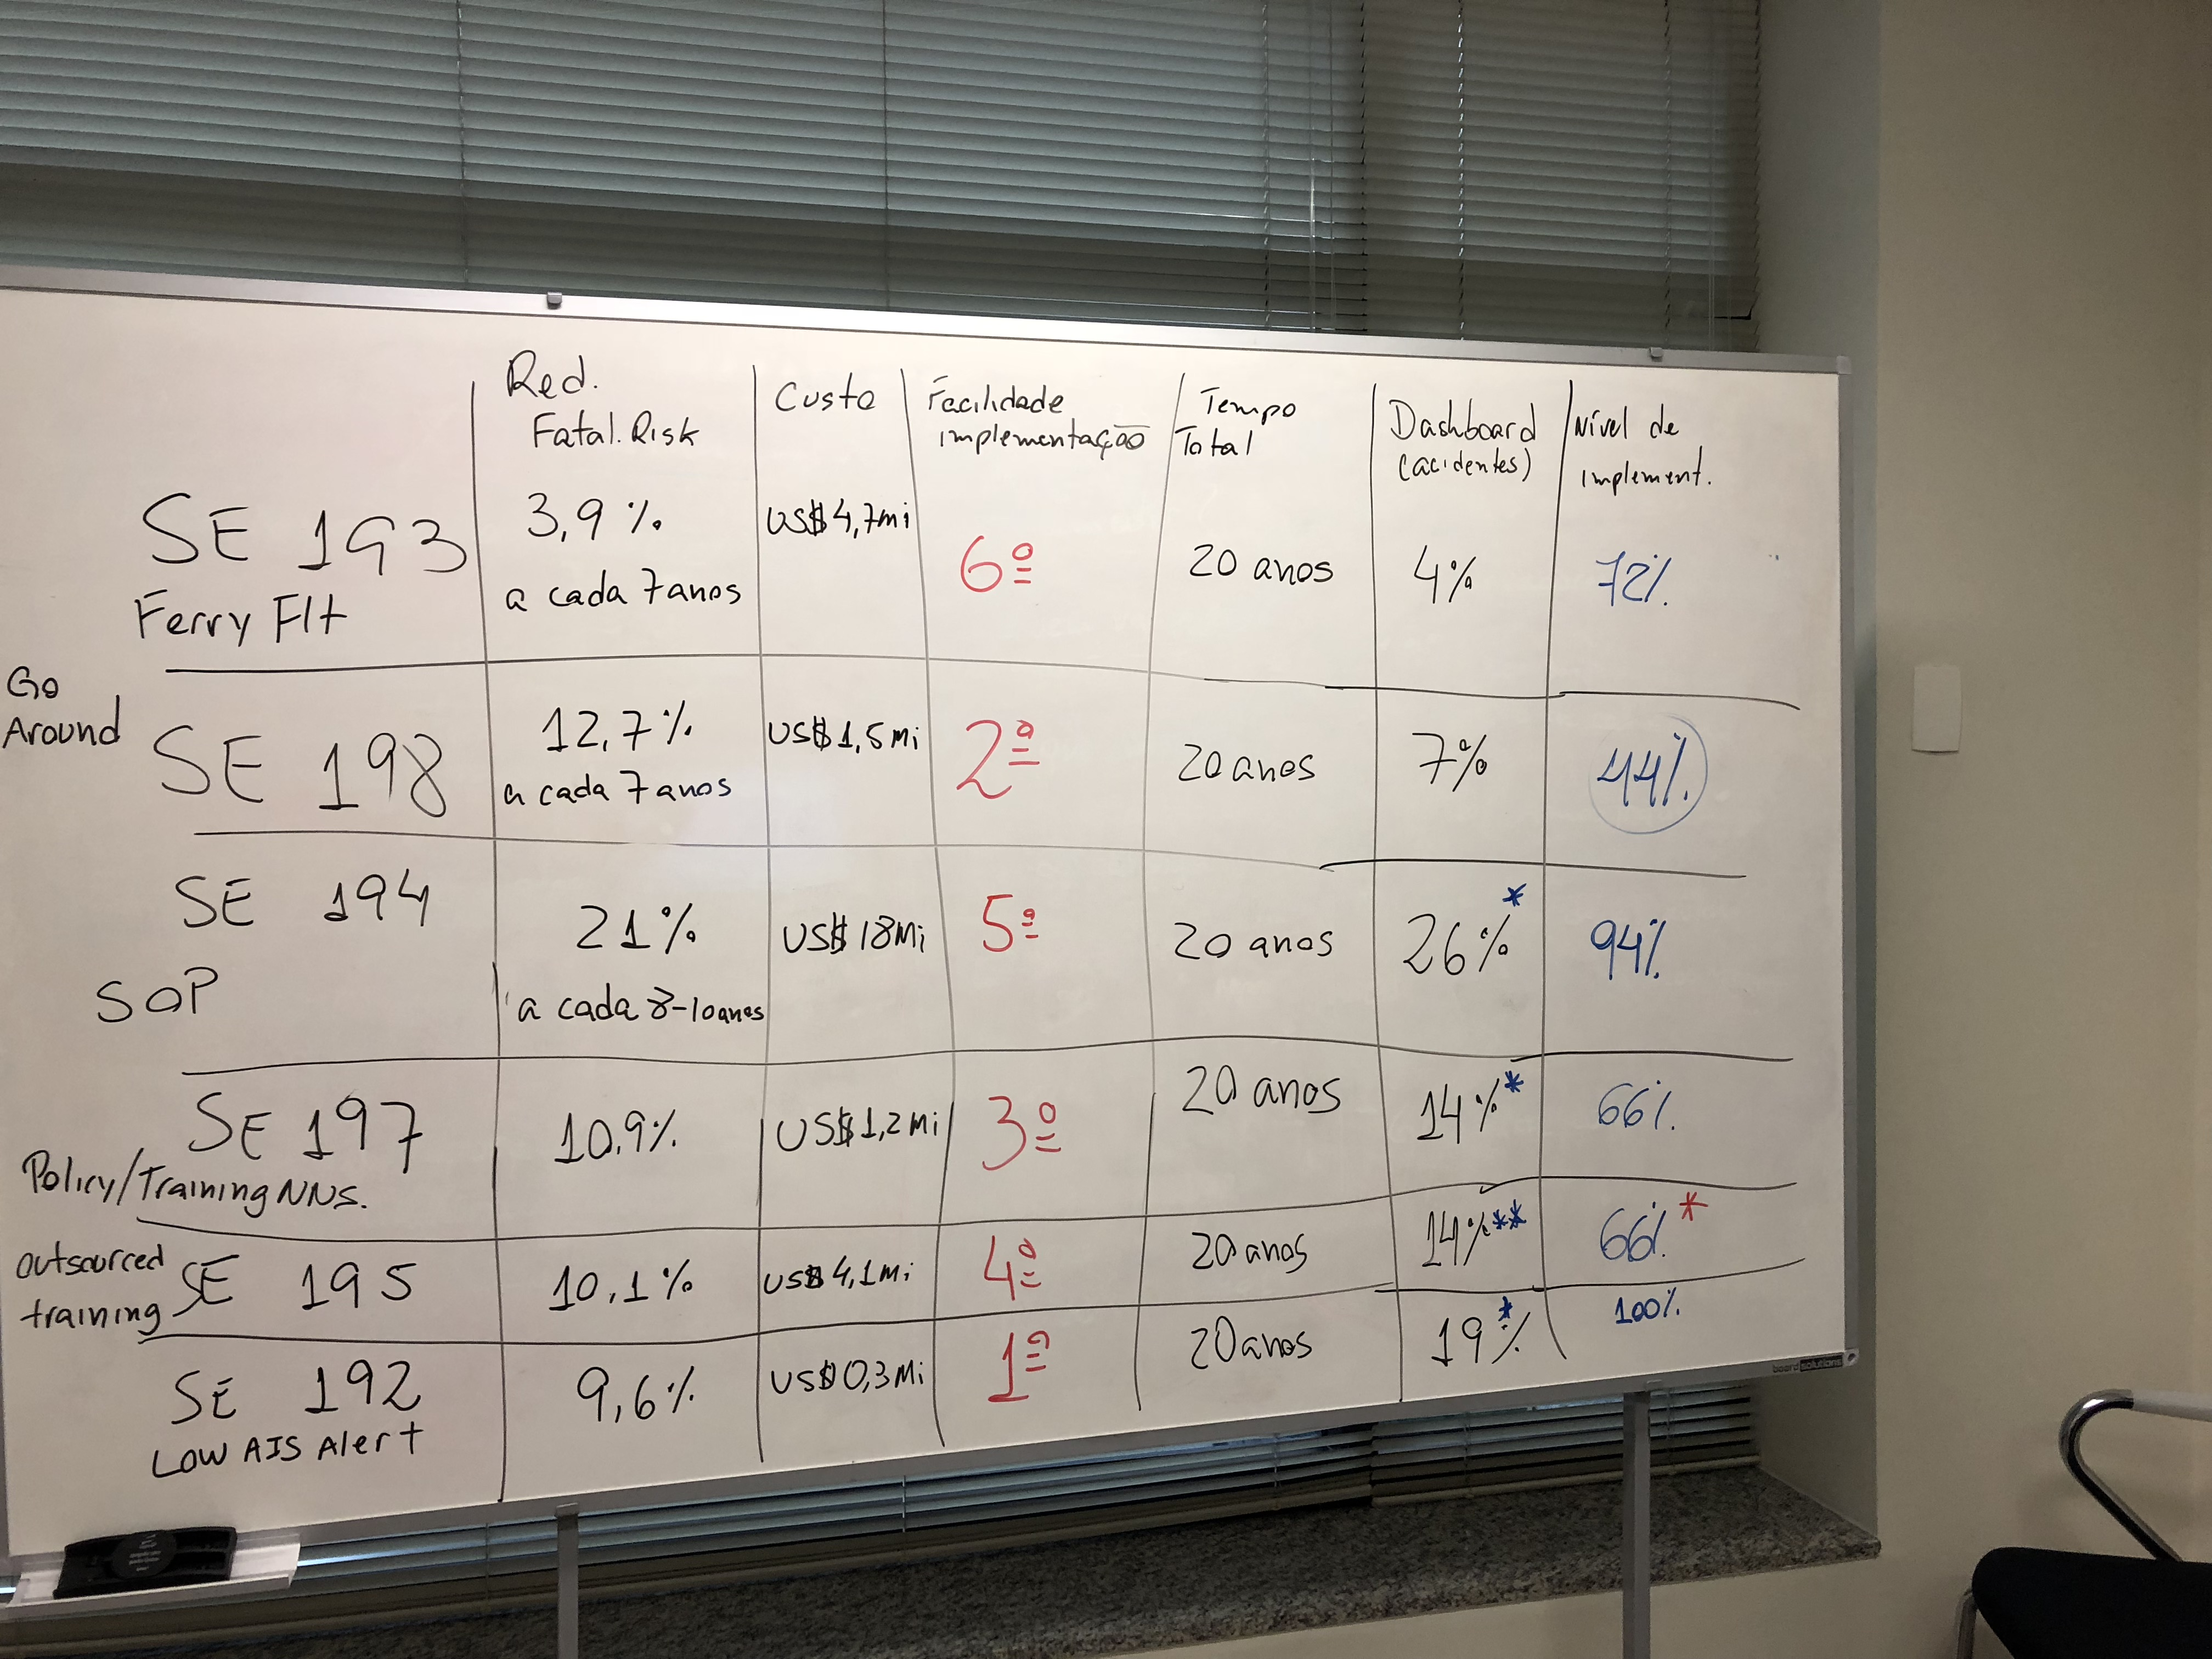 Red.
Fatal. Risk
Custo
Facilidade
implementação
Tempo
Total
Dashboard
(acidentes)
Nível de
implement.
SE 193
Ferry Flt
3,9%
a cada 7 anos
US$ 4,7mi
6º
20 anos
4%
72%
Go
Around
SE 198
12,7%
a cada 7 anos
US$ 1,5Mi
2º
20 anos
7%
44%
SE 194
SOP
21%
a cada 8-10 anos
US$ 18Mi
5º
20 anos
26%*
94%
SE 197
Policy/Training NNS.
10,9%
US$ 1,2Mi
3º
20 anos
14%*
66%
Outsourced
training
SE 195
10,1%
US$ 4,1Mi
4º
20 anos
14%**
66%*
SE 192
LOW AIS Alert
9,6%
US$ 0,3Mi
1º
20 anos
19%*
100%
boardsolutions